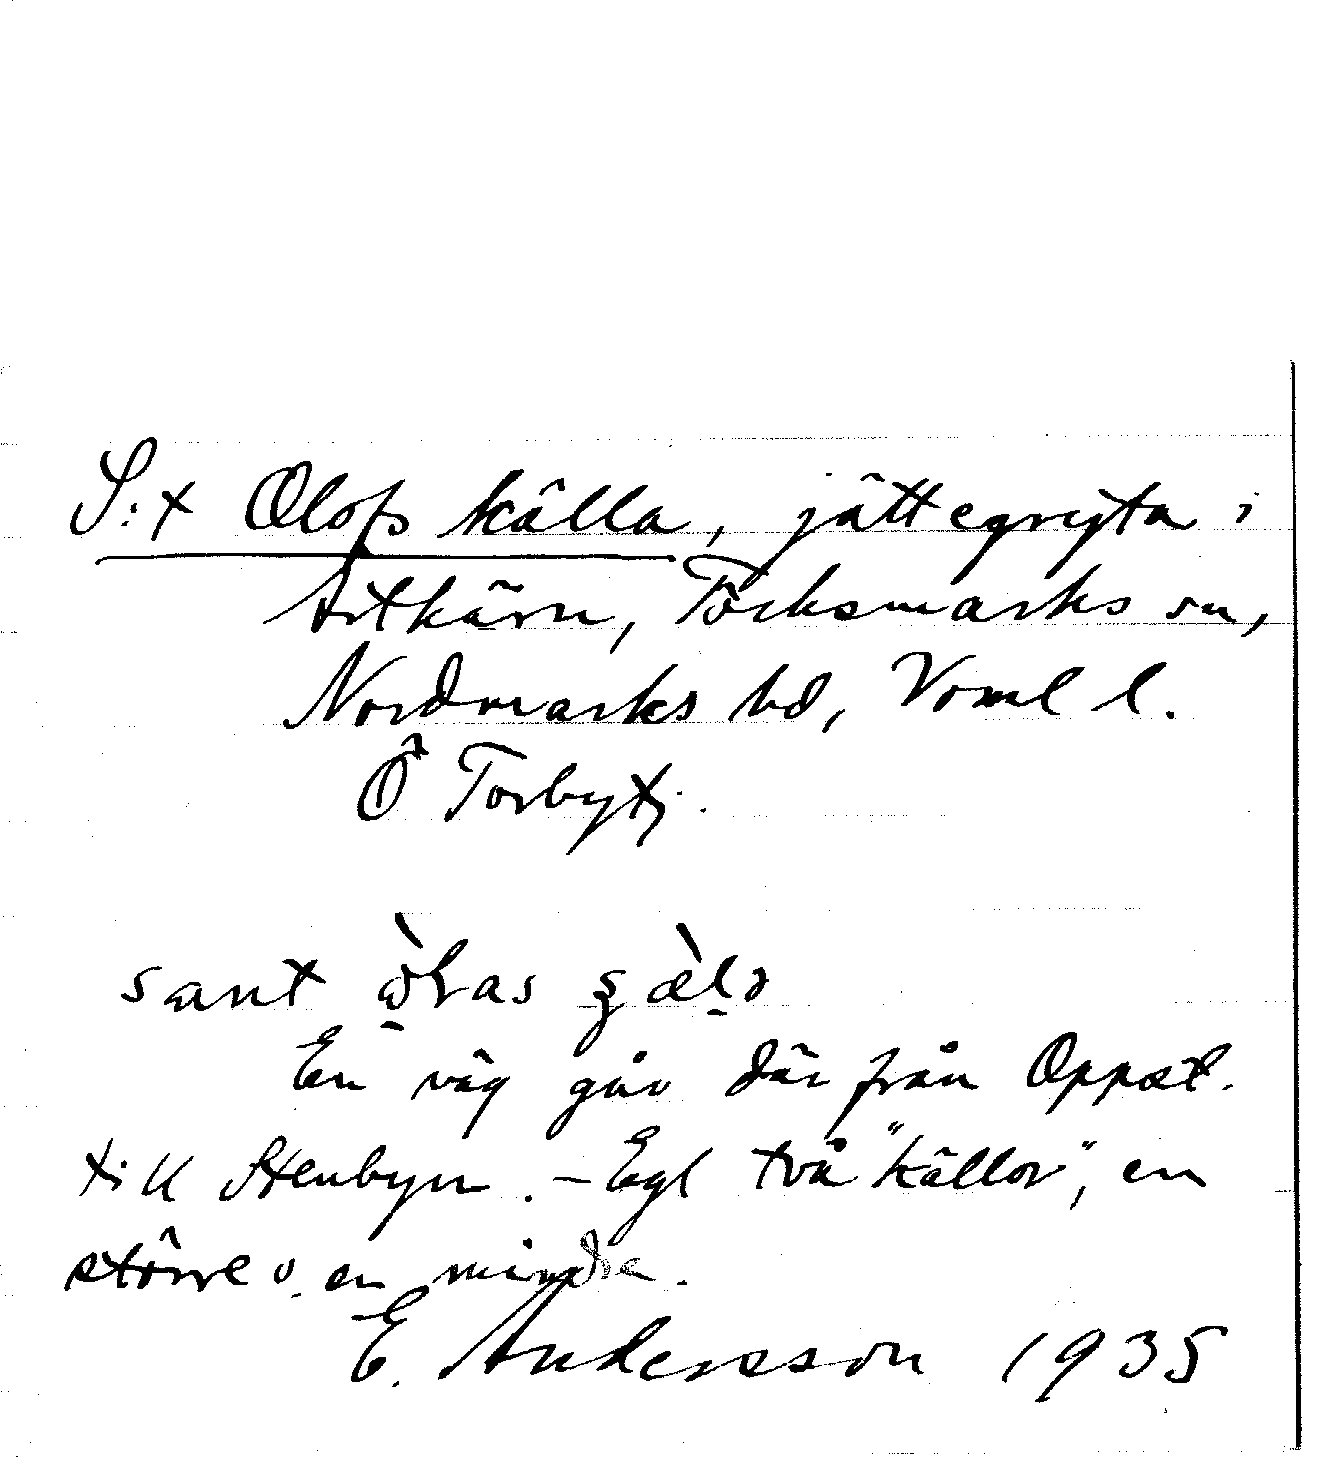 S:t Olofs källa, jättegryta i
Artkärn, Töcksmarks sn,
Nordmarks hd, Vrml l.
Ö Torbytj.
sant
En väg går där från Oppst.
till Stenbyn. – Egl två "källor", en
större o. en mindre.
E. Andersson 1935